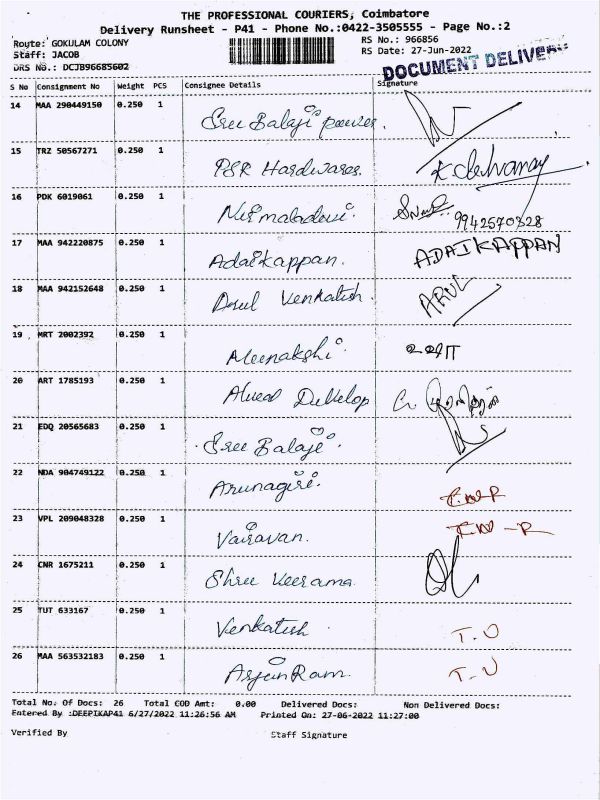 THE PROFESSIONAL COURIERS, Coimbatore
Delivery Runsheet - P41 - Phone No.:0422-3505555 - Page No.:2
Route: GOKULAM COLONY RS No.: 966856
Staff: JACOB RS Date: 27-Jun-2022
DRS No.: DCJB96685602 DOCUMENT DELIVERY
S No Consignment No Weight PCS Consignee Details Signature
14 MAA 290449150 0.250 1 Sree Balaji power.
15 TRZ 50567271 0.250 1 PSR Hardwares.
16 PDK 6019061 0.250 1 Nirmaladevi. 9942570828
17 MAA 942220875 0.250 1 Adaikappan. ADAIKAPPAN
18 MAA 942152648 0.250 1 Arul Venkatish. ARUL
19 MRT 2002392 0.250 1 Meenakshi
20 ART 1785193 0.250 1
21 EDQ 20565683 0.250 1 Sree Balaji.
22 NDA 904749122 0.250 1 Arunagiri.
23 VPL 209048328 0.250 1 Vairavan.
24 CNR 1675211 0.250 1 Shree Veerama
25 TUT 633167 0.250 1 Venkatish
26 MAA 563532183 0.250 1 Arjun Ram.
Total No. Of Docs: 26 Total COD Amt: 0.00 Delivered Docs: Non Delivered Docs:
Entered By :DEEPIKAP41 6/27/2022 11:26:56 AM Printed On: 27-06-2022 11:27:00
Verified By Staff Signature